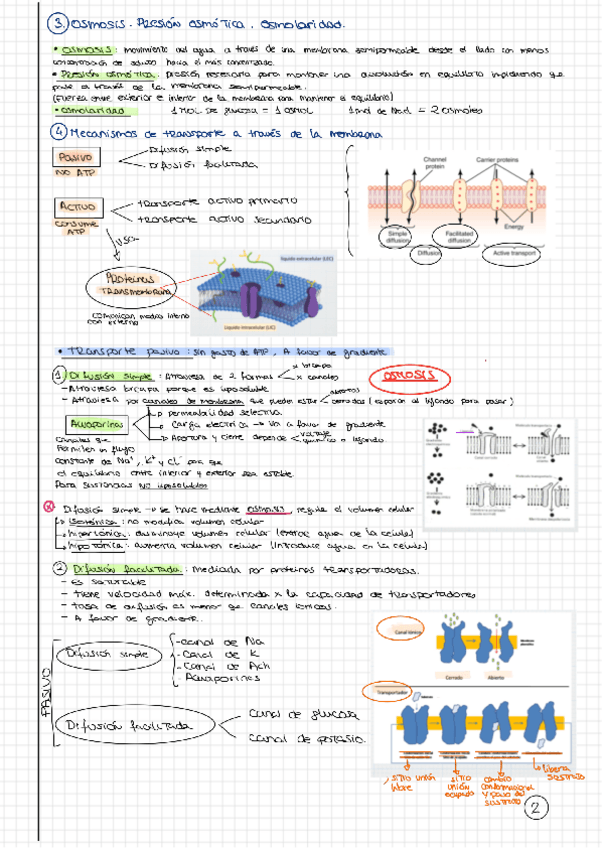 ③ OSMOSIS. PRESIÓN OSMÓTICA. OSMOLARIDAD.
• OSMOSIS: movimiento del agua a través de una membrana semipermeable desde el lado con menos
concentración de soluto hacia el más concentrado.
• Presión osmótica: presión necesaria para mantener una disolución en equilibrio impidiendo que
pase a través de la membrana semipermeable.
(Fuerza entre exterior e interior de la membrana para mantener el equilibrio)
• Osmolaridad 1 MOL DE glucosa = 1 osmol 1 mol de NaCl = 2 osmoles
④ Mecanismos de transporte a través de la membrana
PASIVO
NO ATP
Difusión simple
Difusión facilitada
ACTIVO
CONSUME
ATP
transporte activo primario
transporte activo secundario
USO
PROTEÍNAS
TRANSMEMBRANA
comunican medio interno
con externo
Channel
protein
Carrier proteins
Energy
Simple
diffusion
Facilitated
diffusion
Diffusion
Active transport
líquido extracelular (LEC)
Líquido intracelular (LIC)
• TRANSPORTE pasivo: sin gasto de ATP, A favor de gradiente
① Difusión simple: Atraviesa de 2 formas
x bicapa
x canales
OSMOSIS
- Atraviesa bicapa porque es liposoluble
- Atraviesa por canales de membrana que pueden estar
abiertos
cerrados (esperan al ligando para pasar)
Aquaporinas
permeabilidad selectiva.
Carga eléctrica → Va a favor de gradiente
Apertura y cierre depende
voltaje
químico o ligando
Canales que
Permiten un flujo
constante de Na⁺, K⁺ y Cl⁻ para que
el equilibrio entre interior y exterior sea estable.
Para sustancias NO liposolubles
Difusión simple → se hace mediante osmosis, regula el volumen celular
Isotónica: no modifica volumen celular
hipertónica: disminuye volumen celular (extrae agua de la célula)
hipotónica: aumenta volumen celular (introduce agua en la célula)
② Difusión facilitada: mediada por proteínas transportadoras.
- Es saturable
- tiene velocidad máx. determinada x la capacidad de transportadores
- tasa de difusión es menor que canales iónicos.
- A favor de gradiente.
PASIVO
Difusión simple
- Canal de Na
- Canal de K
- Canal de Ach
- Aquaporinas
Difusión facilitada
Canal de glucosa
Canal de potasio.
Canal iónico
Cerrado
Abierto
Transportador
sitio unión
libre
sitio
unión
ocupado
cambio
conformacional
y paso del
sustrato
libera
sustrato
2